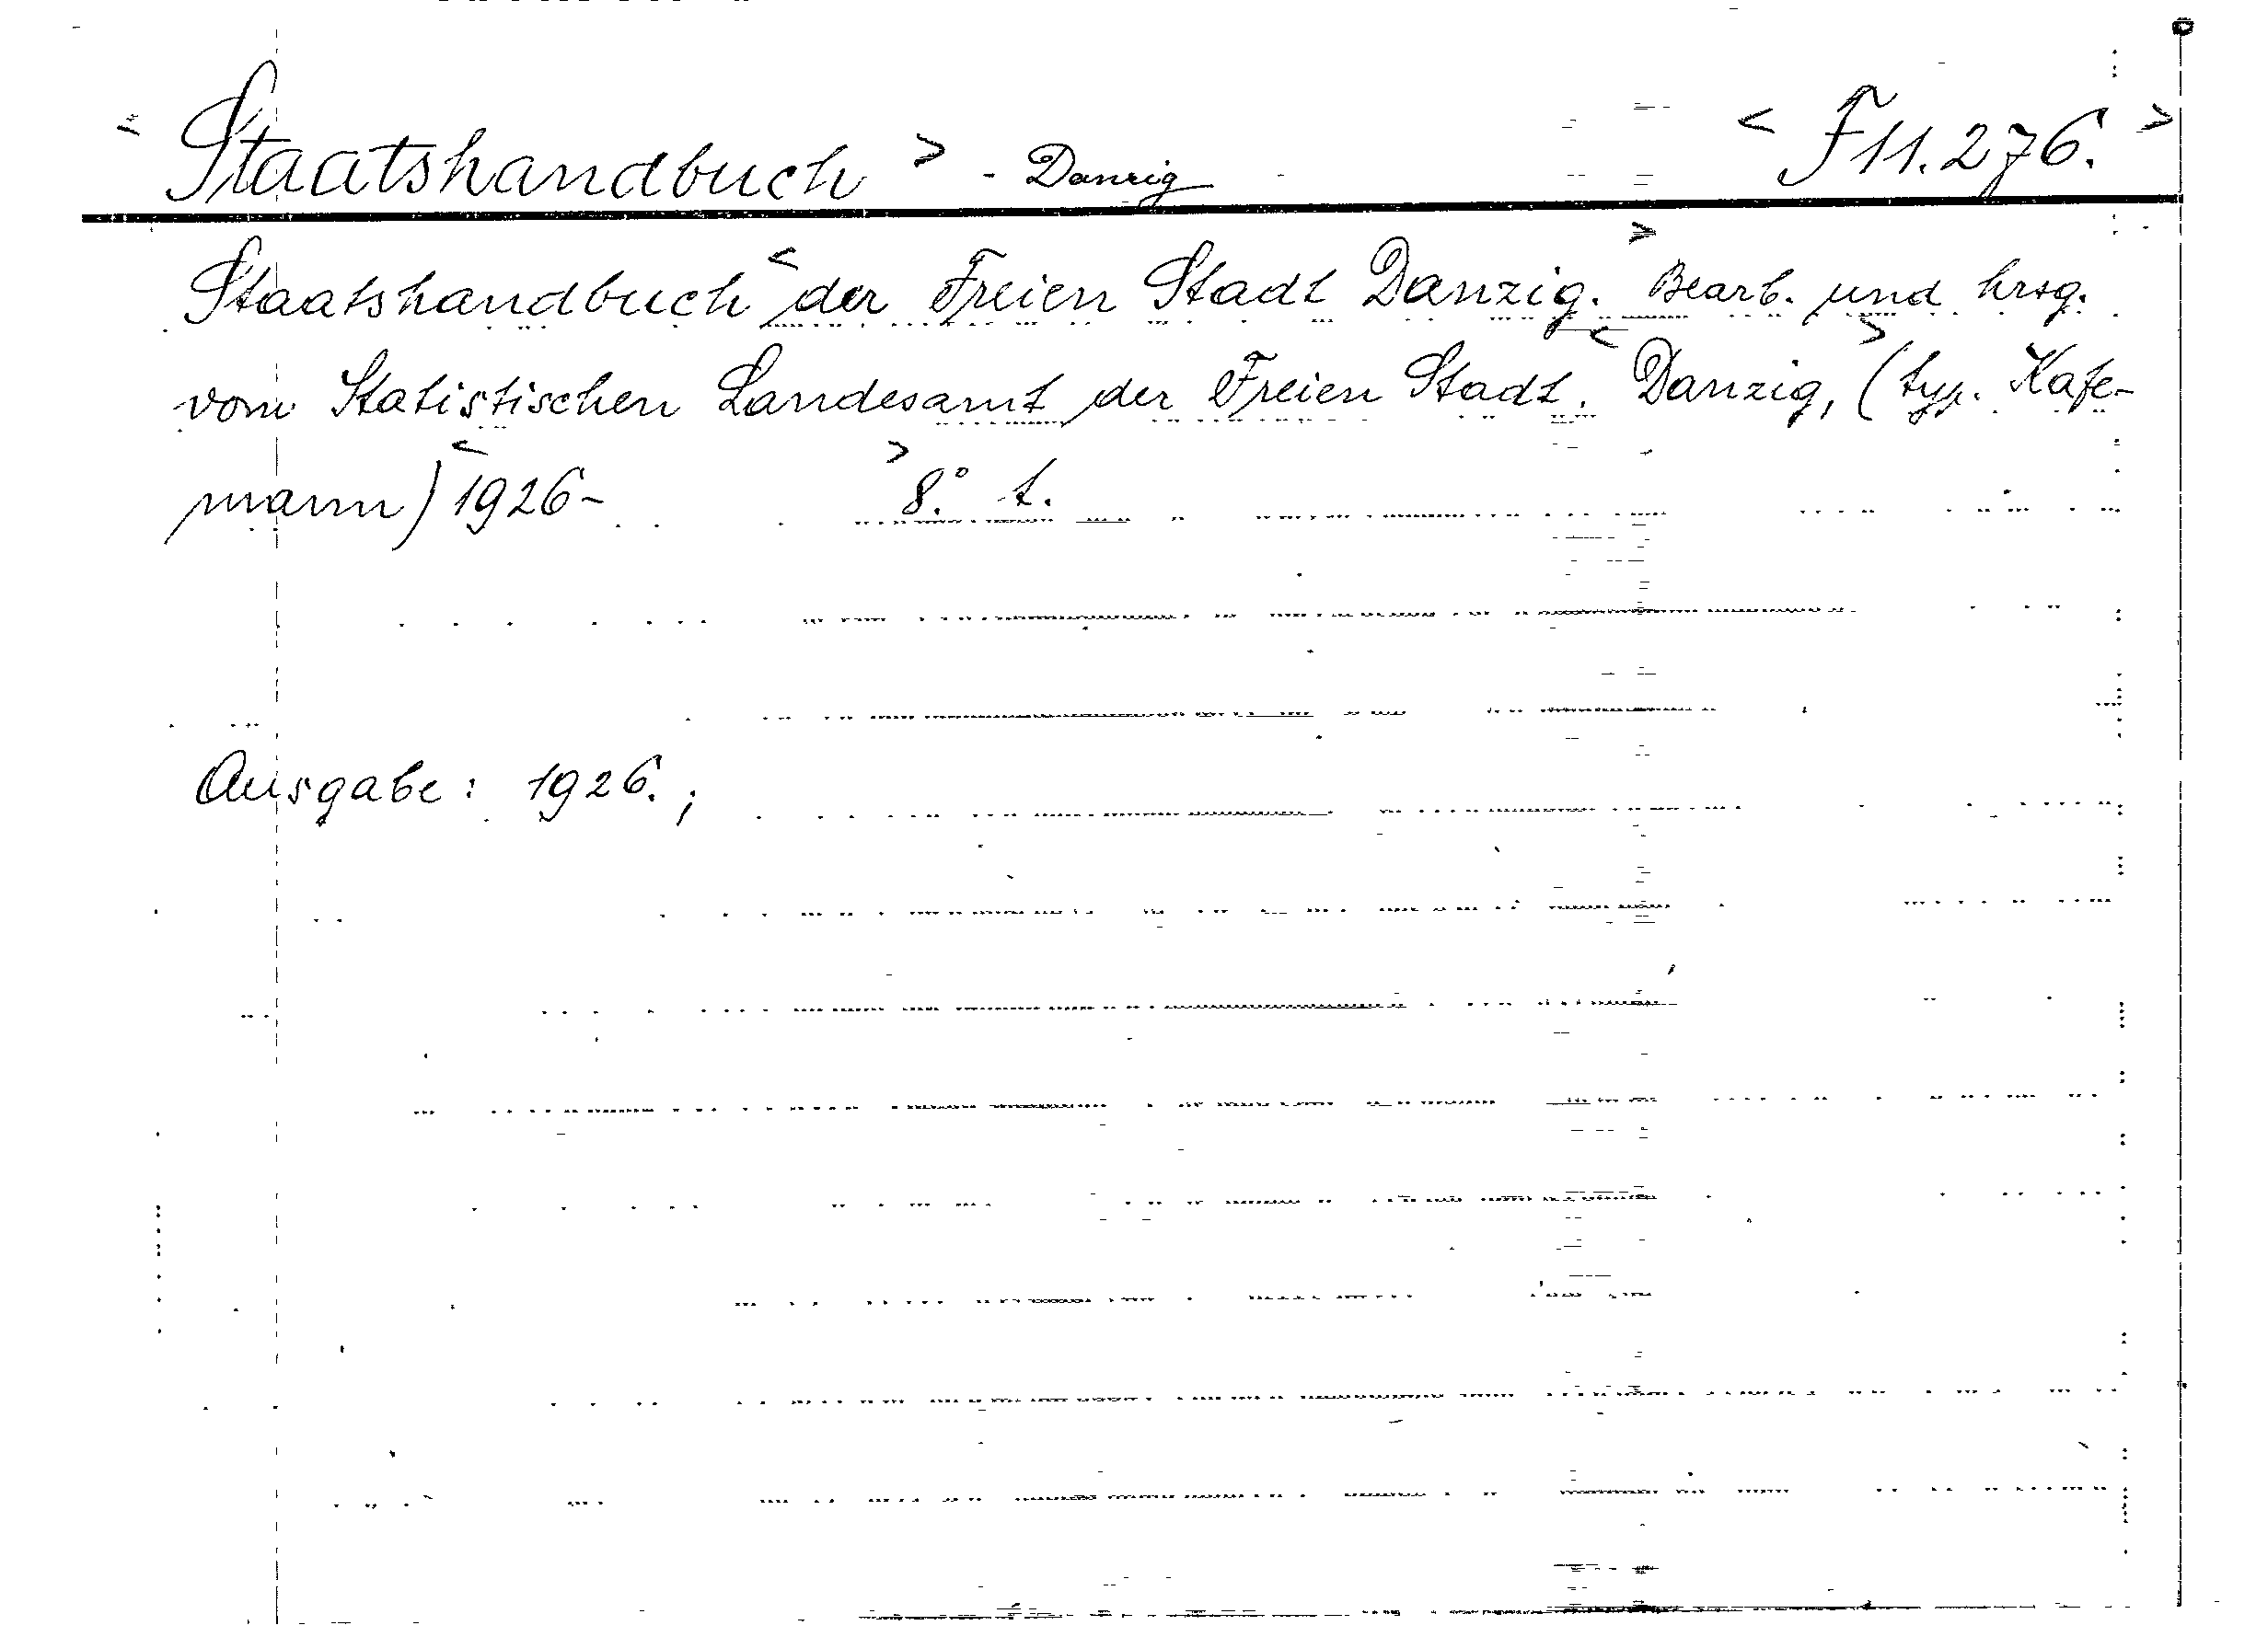 < Staatshandbuch > - Danzig < F 11.276. >
Staatshandbuch < der Freien Stadt Danzig. > Bearb. und hrsg.
vom Statistischen Landesamt der Freien Stadt. < Danzig, > (typ. Kafe-
mann) < 1926- > 8.° t.
Ausgabe: 1926. ;